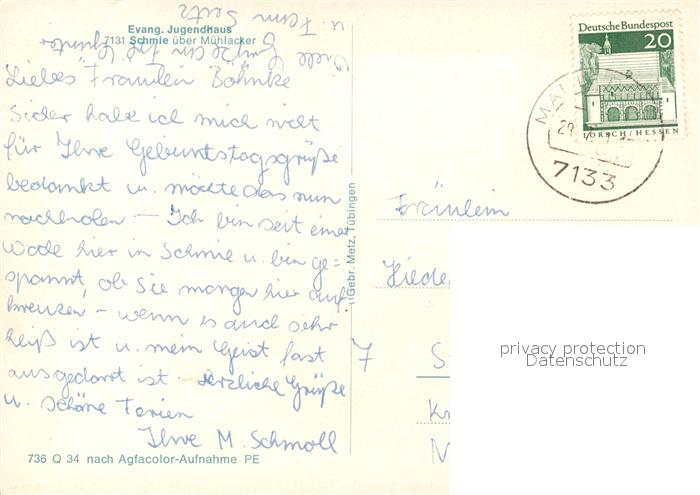 Evang. Jugendhaus
7131 Schmie über Mühlacker
Liebes Fräulein Böhnke
Leider habe ich mich nicht
für Ihre Geburtstagsgrüße
bedankt u. möchte das nun
nachholen – Ich bin seit einer
Woche hier in Schmie u. bin ge=
spannt, ob Sie morgen hier auf
kreuzen – wenn es auch sehr
heiß ist u. mein Geist fast
ausgedörrt ist. Herzliche Grüße
u. schöne Ferien
Ihre M. Schmoll
Viele Grüße an
u. Fam. Seitz
736 Q 34 nach Agfacolor-Aufnahme PE
Gebr. Metz, Tübingen
Deutsche Bundespost
20
LORSCH/HESSEN
MAUL
29.
7133
Fräulein
7 S
privacy protection
Datenschutz